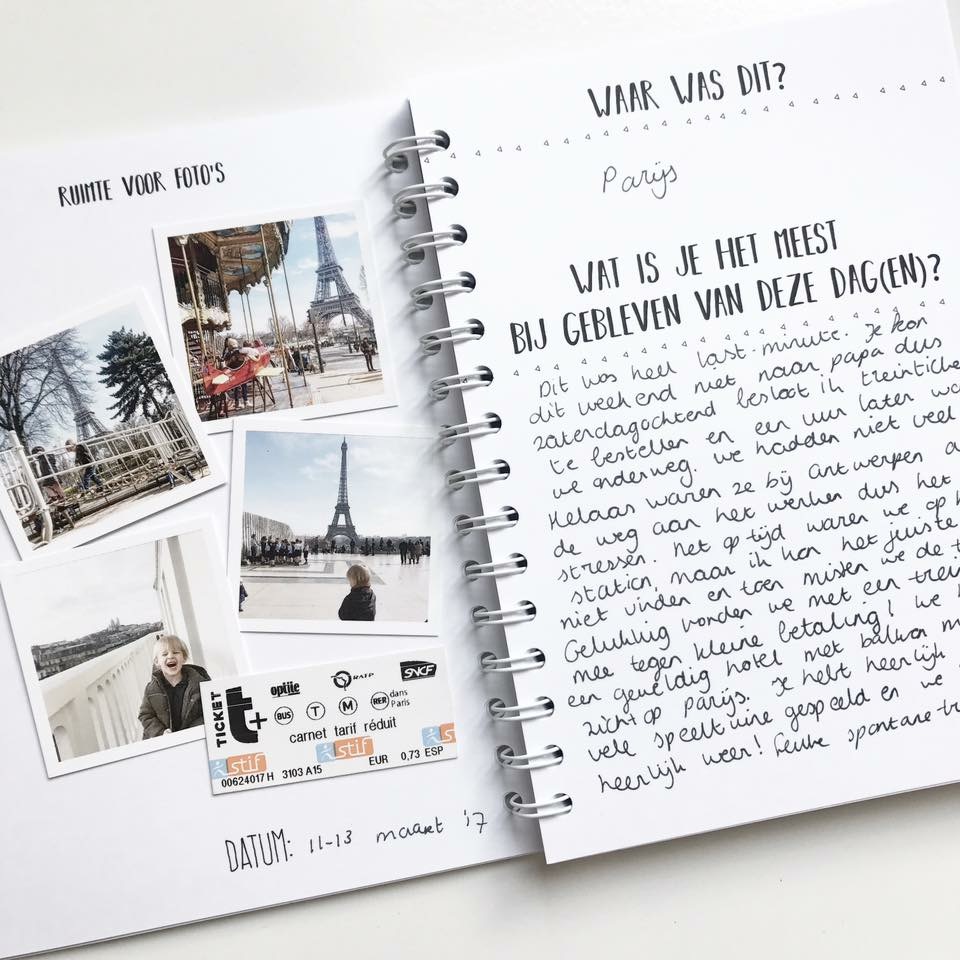 RUIMTE VOOR FOTO'S
TICKET
t+
optile
RATP
SNCF
BUS T M RER dans
Paris
carnet tarif réduit
stif stif sti
00624017 H 3103 A15 EUR 0,73 ESP
DATUM: 11-13 maart '17
WAAR WAS DIT?
Parijs
WAT IS JE HET MEEST
BIJ GEBLEVEN VAN DEZE DAG(EN)?
Dit was heel last-minute. Je kon
dit weekend niet naar papa dus
zaterdagochtend besloot ik treinticke
te bestellen en een uur later wa
we onderweg. We hadden niet veel
Helaas waren ze bij Antwerpen a
de weg aan het werken dus het
stressen. Net op tijd waren we op h
station, maar ik kon het juiste
niet vinden en toen misten we de t
Gelukkig konden we met een trei
mee tegen kleine betaling! We
een geweldig hotel met balkon m
zicht op Parijs. Je hebt heerlijk
vele speeltuine gespeeld en we
heerlijk weer! Leuke spontane tr